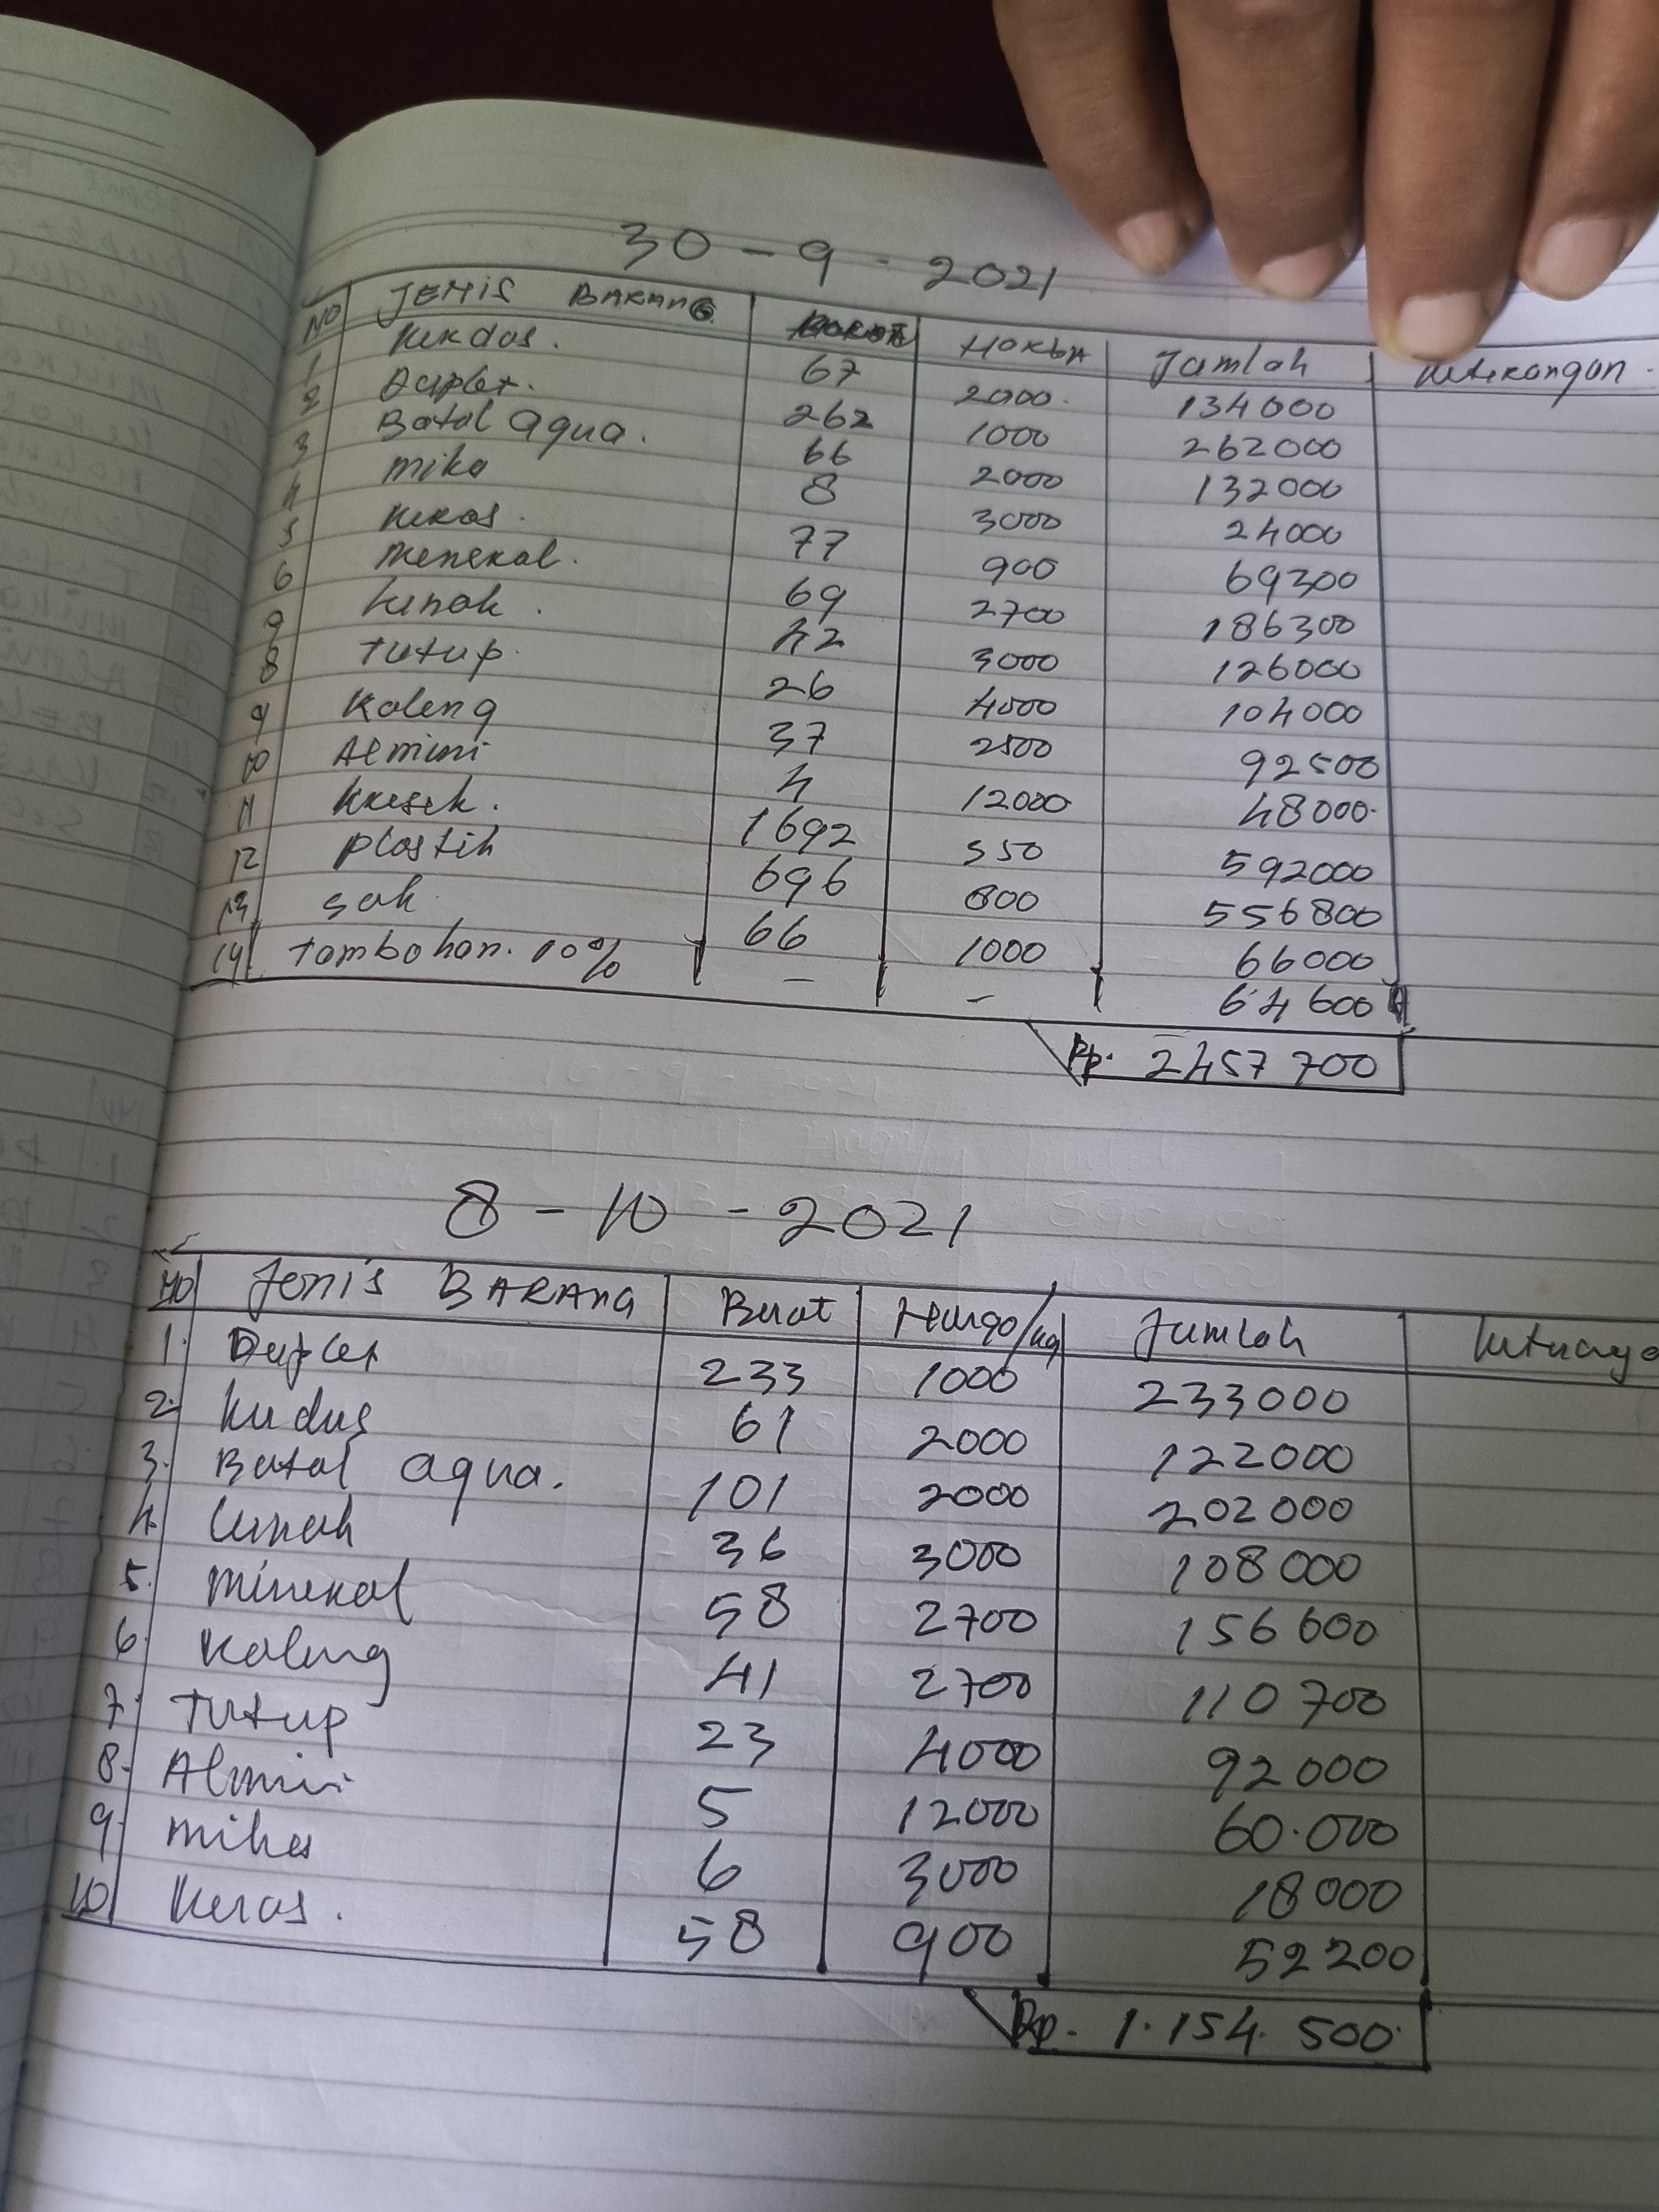 30 - 9 - 2021
NO JENIS BARANG BERAT HARGA Jumlah Keterangan
1 Kerdos. 67 2000 134000
2 Duplex. 262 1000 262000
3 Botol aqua. 66 2000 132000
4 mika 8 3000 24000
5 Keras. 77 900 69300
6 meneral. 69 2700 186300
9 Lunak. 42 3000 126000
8 Tutup. 26 4000 104000
9 Kaleng 37 2500 92500
10 Almini 4 12000 48000
11 Kresek. 1692 350 592000
12 Plastik 696 800 556800
13 sak 66 1000 66000
14 tambahan. 10% - - 64600
Rp. 2457 700
8 - 10 - 2021
NO Jenis BARANG Berat Harga/kg Jumlah
1. Duplex 233 1000 233000
2. Kerdus 61 2000 122000
3. Botol aqua. 101 2000 202000
4. Lunak 36 3000 108000
5. mineral 58 2700 156600
6. Kaleng 41 2700 110700
7. Tutup 23 4000 92000
8. Almini 5 12000 60.000
9. mika 6 3000 18000
10 Keras. 58 900 52200
Rp. 1.154.500